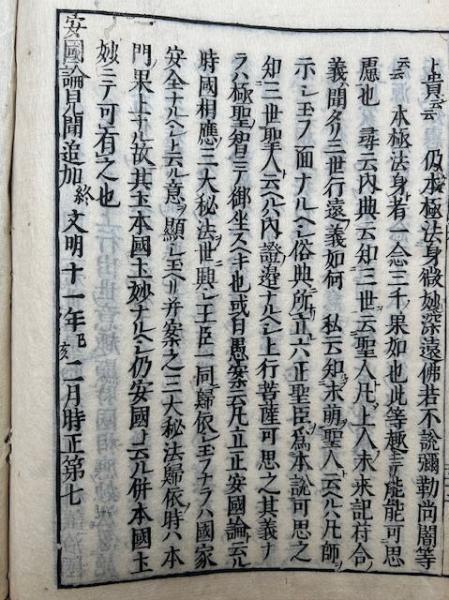 上貴云云 仍本極法身微妙深遠佛若不說彌勒尚闇等
云云 本極法身者一念三千果如也此等趣ヲ能能可思
惠也 尋云內典云知三世云聖人凡ソ上人未來記符合
義聞タリ三世行遠義如何 私云知未萌聖人云ヘル凡師ノ
示シ玉フ面ナルヘシ俗典所立六正聖臣爲本說可思之
知三世聖人云ヘルハ內證邊ナルヘシ上行菩薩可思之其義ナ
ラハ極聖ノ智ミテ御坐スヘキ也或曰愚案云凡立正安國論云ル
時國相應三大秘法世興シ王臣一同歸依シ玉フナラハ國家
安全ナルヘシト云ル意ヲ顯シ玉ヘリ并案之三大秘法歸依時ハ本
門果上ナル故其玉本國玉妙ナルヘシ仍安國ト云ル併本國玉
妙ミテ可有之也
安國論見聞追加終 文明十一年己亥二月時正第七